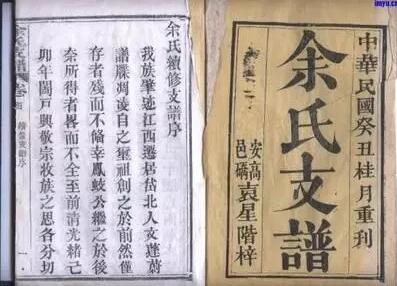 中華民國癸丑桂月重刊
余氏支譜
高碼
安邑
袁星階梓
余氏續修支譜序
我族肇迹江西遷居岳北人文蓬蔚
譜牒凋淩自之璽祖創之於前然僅
存者殘而不脩幸鳳岐公繼之於後
奈所得者畧而不全至前清光緒己
卯年闔戸興敬宗收族之思各分切
余氏支譜
續修支譜序
一